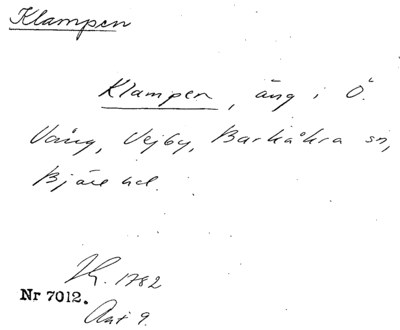 Klampen
Klampen, äng i Ö.
Vång, Vejby, Barkåkra sn,
Bjäre hd.
1782
Nr 7012.
Akt 9.